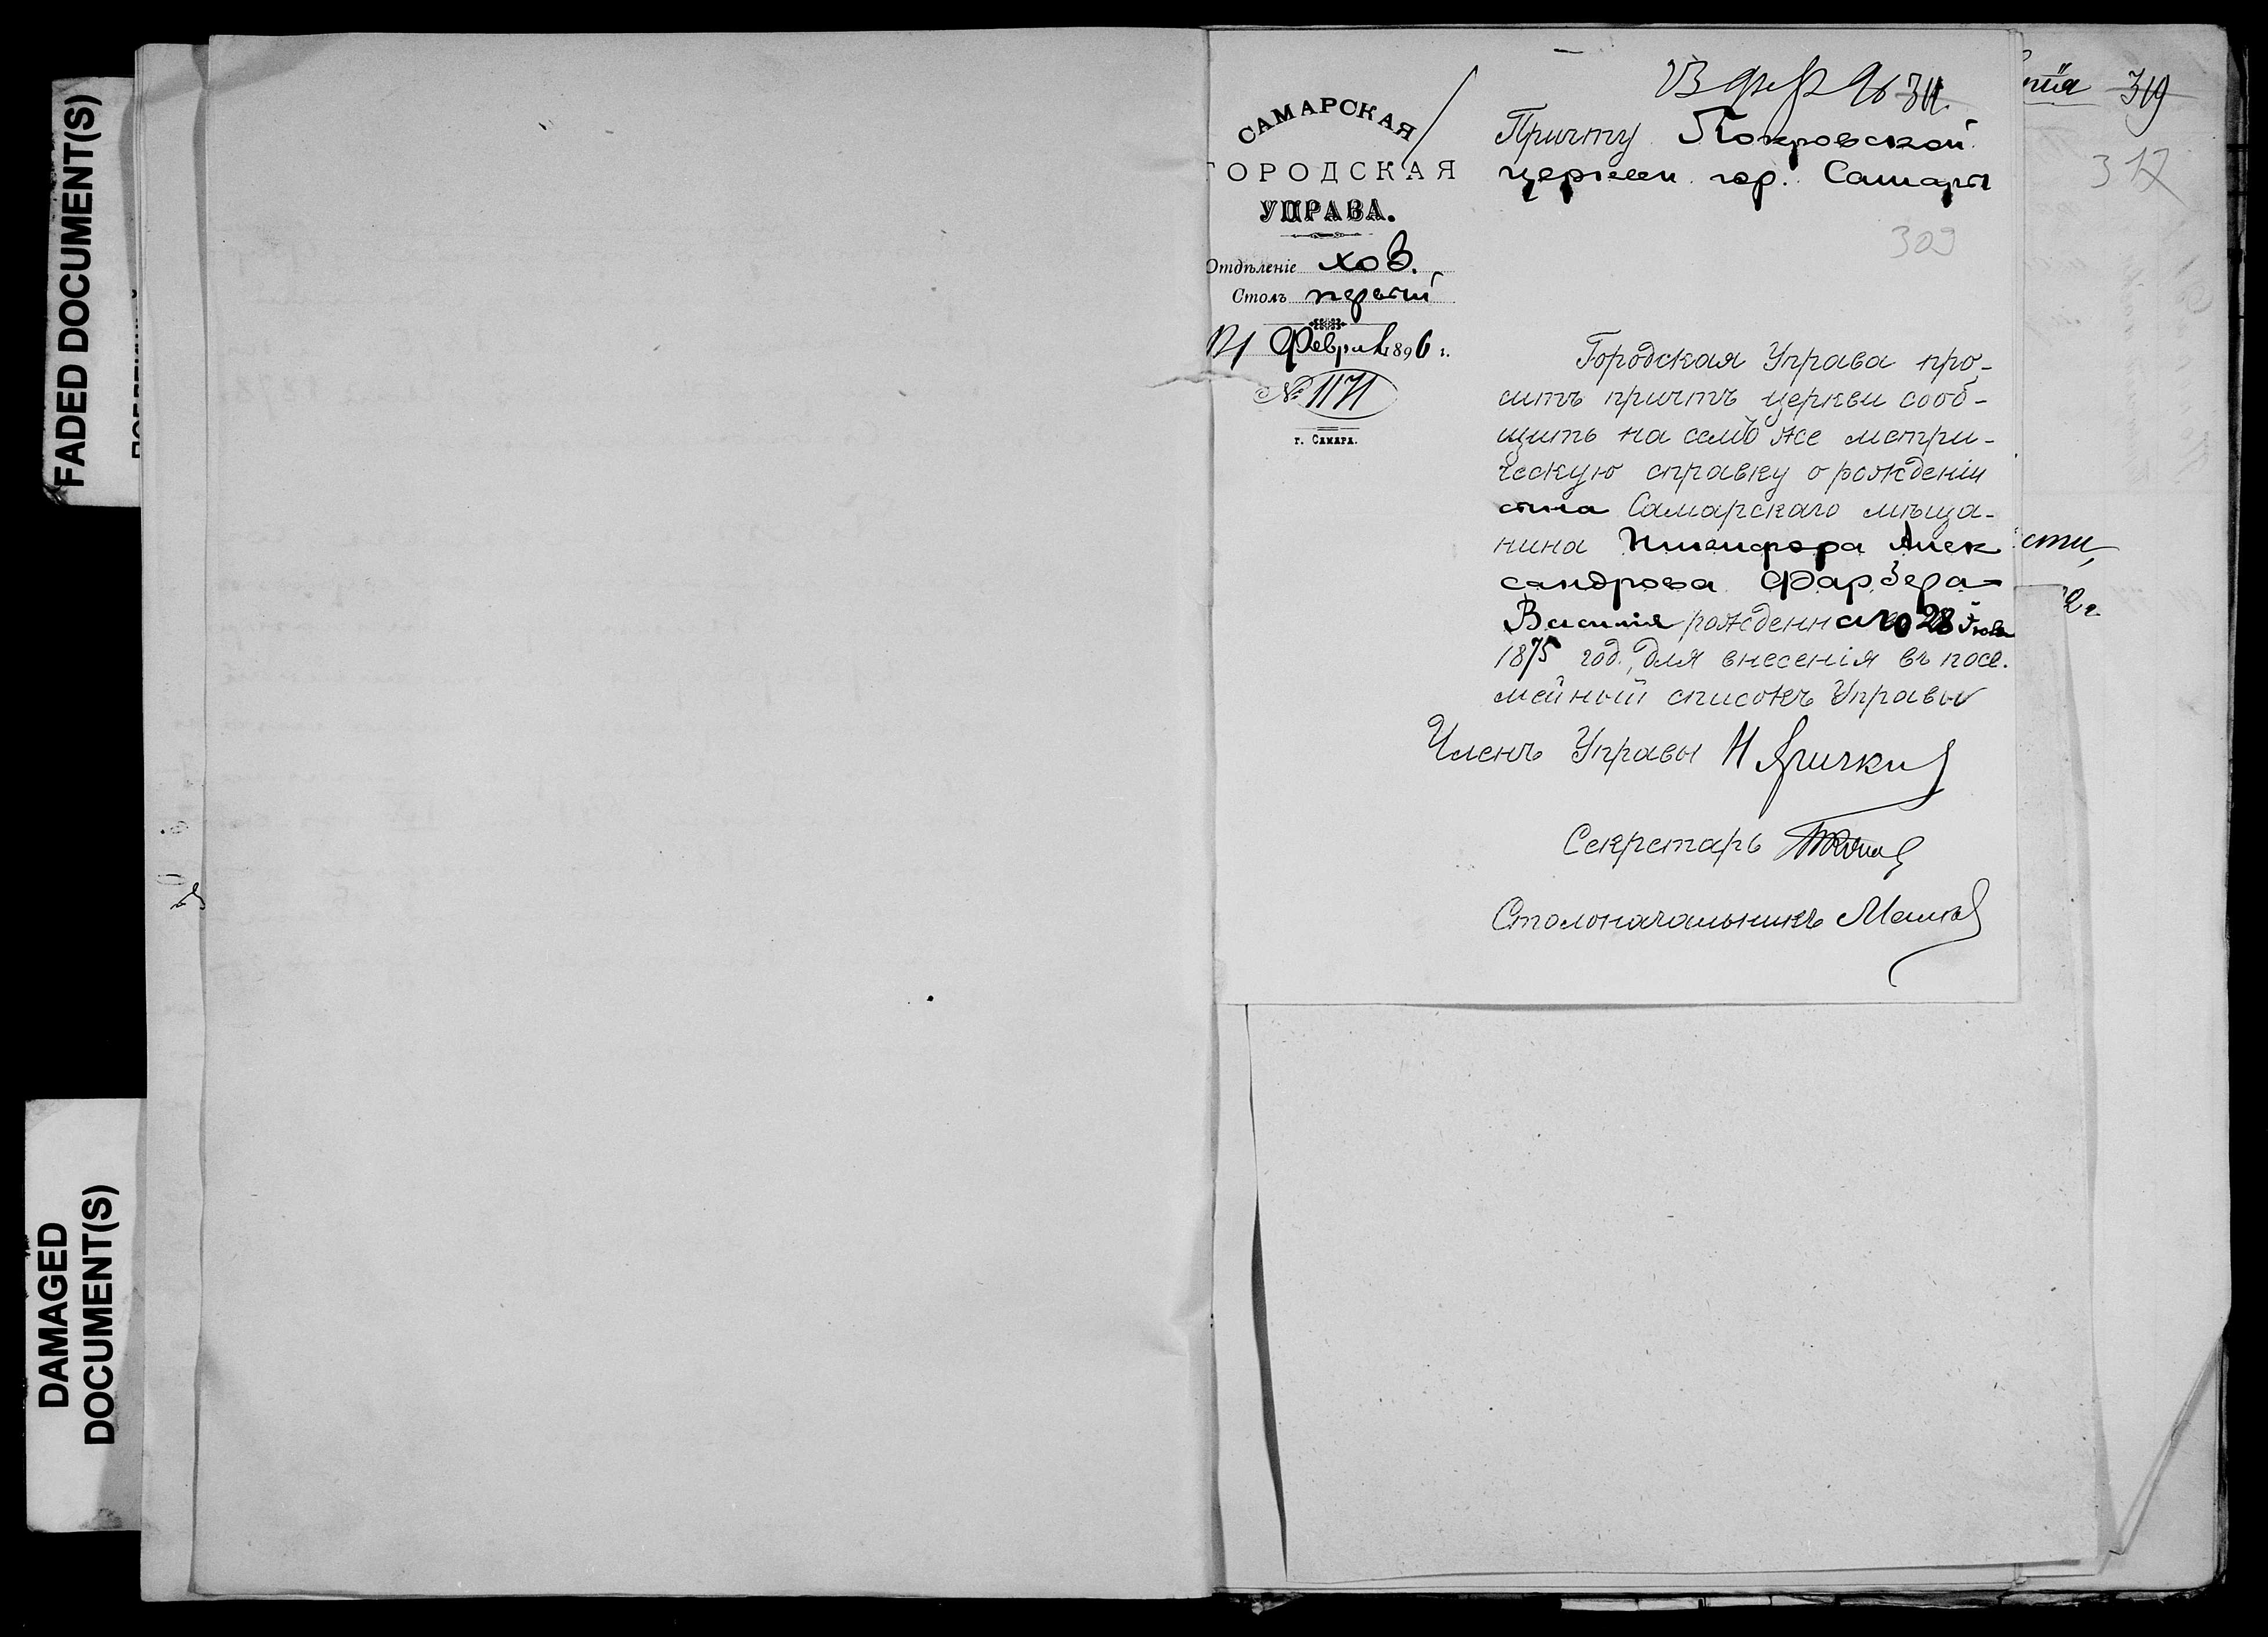 FADED DOCUMENT(S)
DAMAGED
DOCUMENT(S)
САМАРСКАЯ
ГОРОДСКАЯ
УПРАВА.
Отдѣленіе хоз.
Столъ первый
Феврал 1896 г.
№ 1171
г. САМАРА.
96
Причту Покровской
церкви гор. Самары
309
Городская Управа про-
ситъ причтъ церкви сооб-
щить на семъ же метри-
ческую справку о рожденіи
сына Самарскаго мѣща-
нина Никифора Алек
сандрова
Василія рожденнаго 28
1875 год., для внесенія въ посе-
мейный списокъ Управы
Членъ Управы Н
Секретарь
Столоначальникъ
319
317
сти,
2 г.